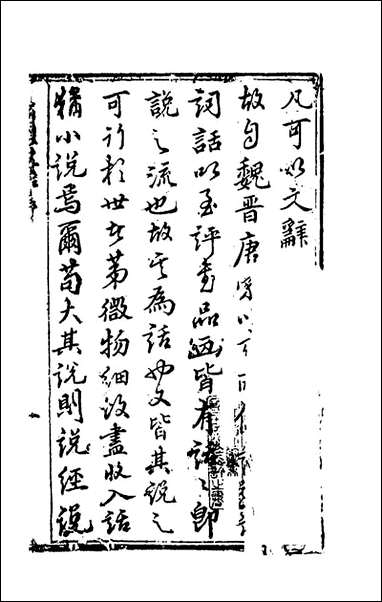 凡可以文辭
故自魏晉唐
詞話以至評書品畫皆有話々即
說之流也故其為話也又皆其說之
可行於世者第微物細故盡收入話
稱小說焉爾苟大其說則說經說